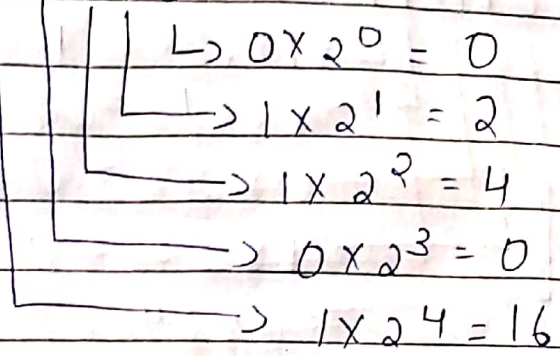 ↳ 0 × 2⁰ = 0
→ 1 × 2¹ = 2
→ 1 × 2² = 4
→ 0 × 2³ = 0
→ 1 × 2⁴ = 16